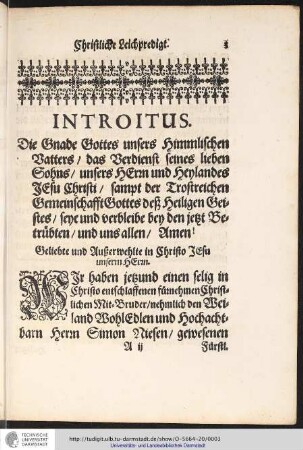 Christliche Leichpredigt.
3
INTROITUS.
Die Gnade Gottes unsers Himmlischen
Vatters / das Verdienst seines lieben
Sohns / unsers HErrn und Heylandes
JEsu Christi / sampt der Trostreichen
Gemeinschafft Gottes deß Heiligen Gei-
stes / seye und verbleibe bey den jetzt Be-
trübten / und uns allen / Amen!
Geliebte und Außerwehlte in Christo JEsu
unserm HErrn.
WIr haben jetzund einen selig in
Christo entschlaffenen fürnehmen Christ-
lichen Mit-Bruder / nehmlich den Wei-
land WohlEdlen und Hochacht-
barn Herrn Simon Niesen / gewesenen
A ij
Fürstl.
TECHNISCHE
UNIVERSITÄT
DARMSTADT
http://tudigit.ulb.tu-darmstadt.de/show/O-5664-20/0003
Universitäts- und Landesbibliothek Darmstadt